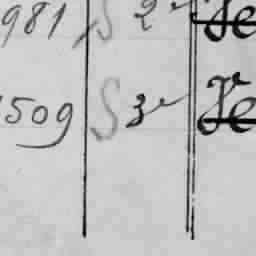 981 S 2 Je
509 S 3 Je